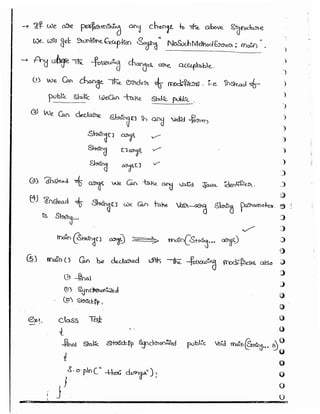 → If we are performing any change to the above signature
we will get RuntimeException Saying "NoSuchMethodError: main".
→ Any the following changes are acceptable.
(1) We can change the order of modifiers. i.e instead of
public static we can take static public.
(2) We can declare String[] in any valid form
String[] args ✓
String []args ✓
String args[] ✓
(3) Instead of args we can take any valid java identifier.
(4) Instead of String[] we can take var-arg String parameter.
is String...
main(String[] args) ⟹ main(String... args)
(5) main() can be declared with the following modifiers also
(i) final
(ii) synchronized
(iii) strictfp.
Ex1. class Test
{
final static strictfp synchronized public void main(String... a)
{
S.o.pln("
}
}